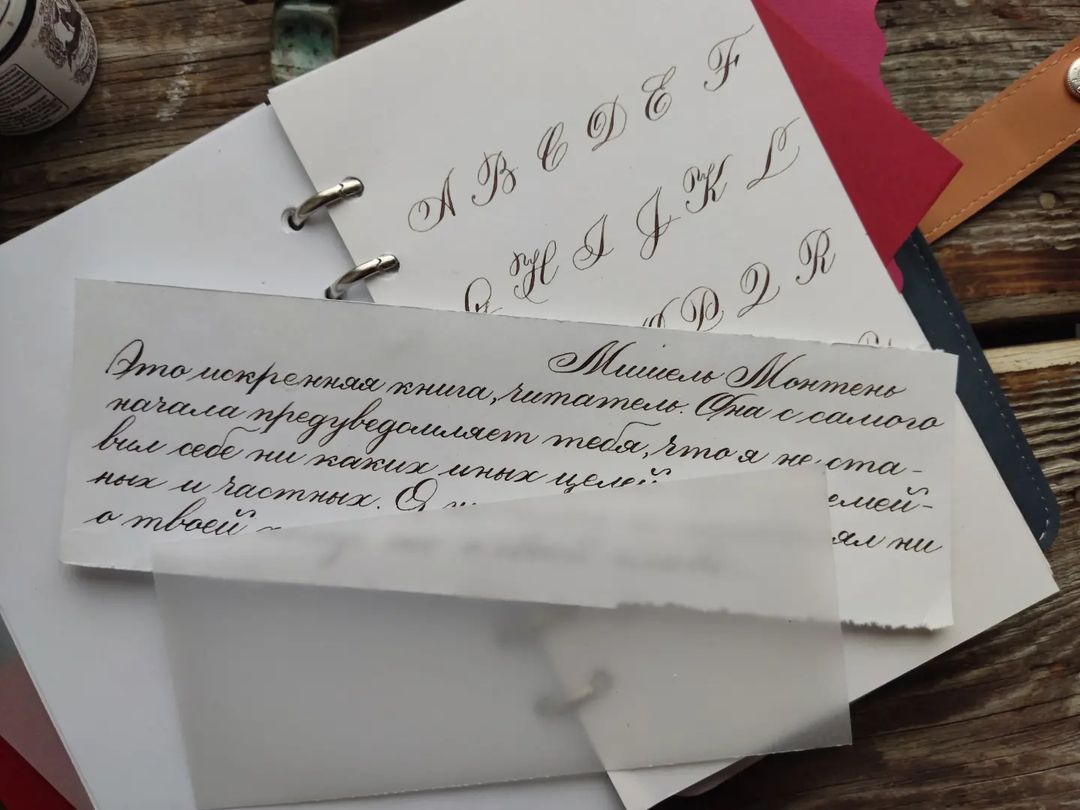 A B C D E F
G H I J K L
P Q R
Мишель Монтень
Это искренняя книга, читатель. Она с самого
начала предуведомляет тебя, что я не ста-
вил себе ни каких иных целей
емей-
ных и частных. Я
о твоей
ял ни